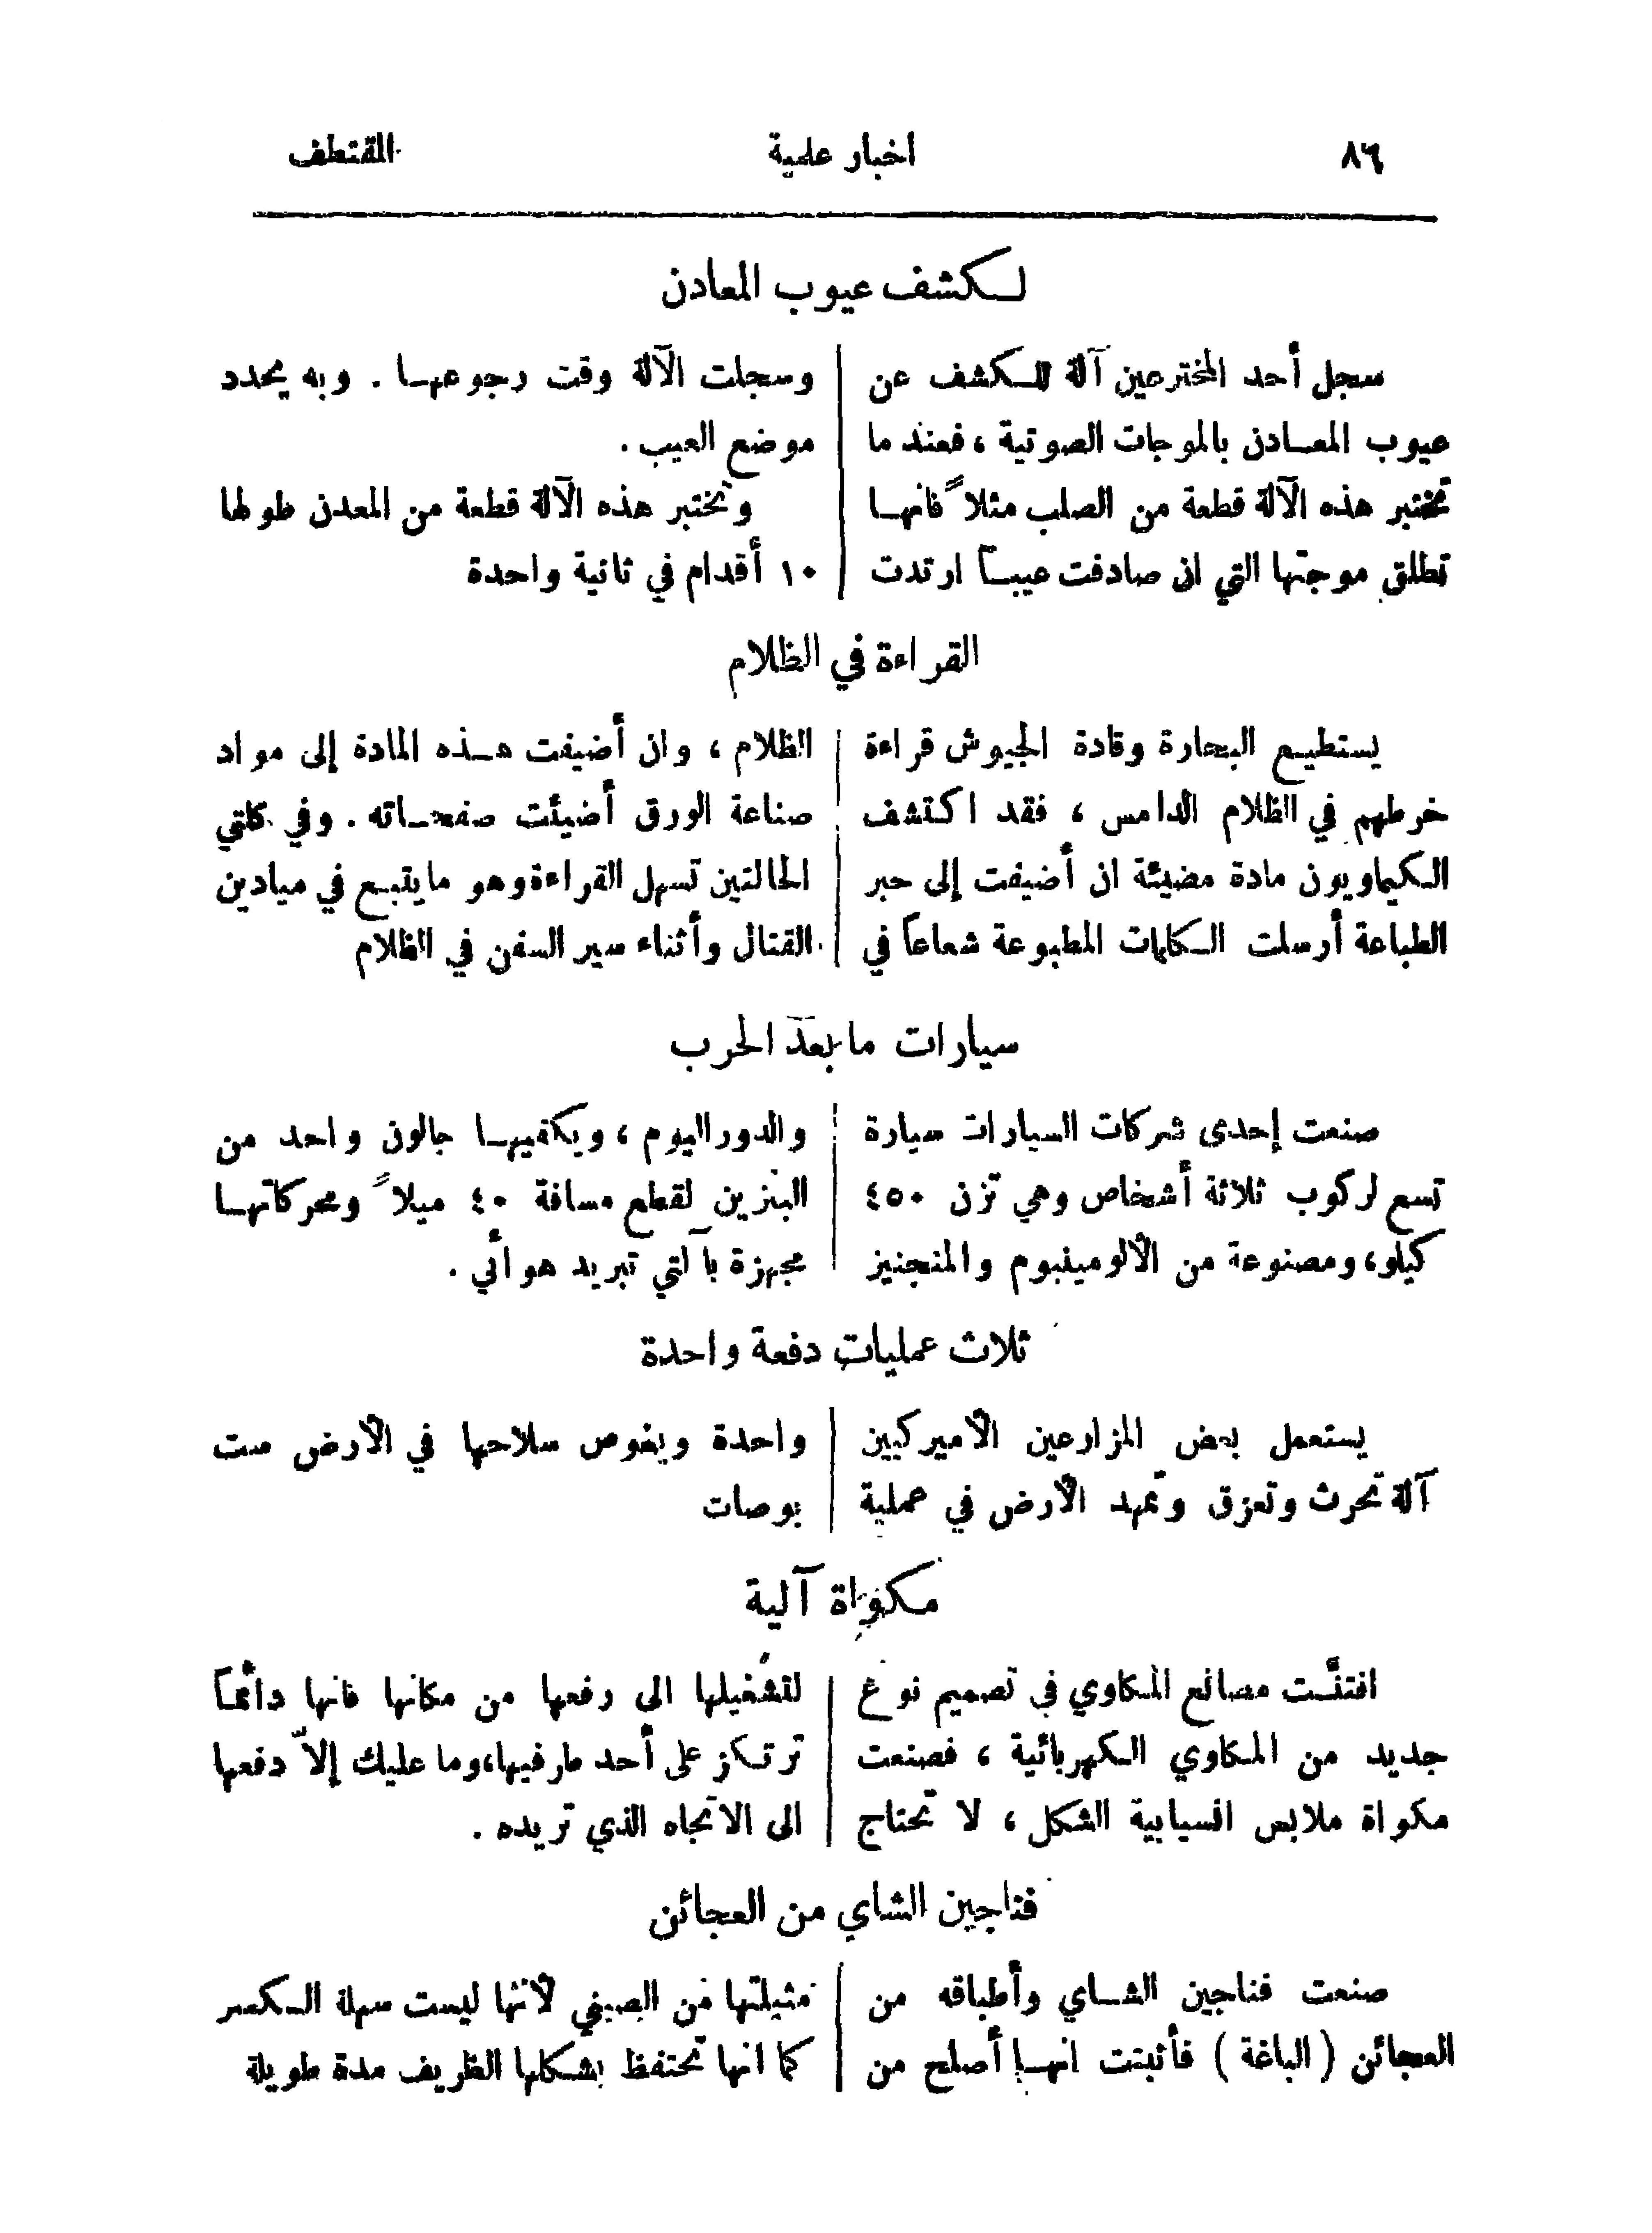 ٨٦ اخبار علمية المقتطف
لكشف عيوب المعادن
سجل أحد المخترعين آلة للكشف عن
عيوب المعادن بالموجات الصوتية ، فعند ما
تختبر هذه الآلة قطعة من الصلب مثلاً فانها
تطلق موجتها التي ان صادفت عيباً ارتدت
وسجلت الآلة وقت رجوعها . وبه يحدد
موضع العيب .
وتختبر هذه الآلة قطعة من المعدن طولها
١٠ أقدام في ثانية واحدة
القراءة في الظلام
يستطيع البحارة وقادة الجيوش قراءة
خرطهم في الظلام الدامس ، فقد اكتشف
الكيماويون مادة مضيئة ان أضيفت إلى حبر
الطباعة أرسلت الكلمات المطبوعة شعاعاً في
الظلام ، وان أضيفت هذه المادة إلى مواد
صناعة الورق أضيئت صفحاته . وفي كلتي
الحالتين تسهل القراءة وهو ما يتبع في ميادين
القتال وأثناء سير السفن في الظلام
سيارات ما بعد الحرب
صنعت إحدى شركات السيارات سيارة
تسع لركوب ثلاثة أشخاص وهي تزن ٤٥٠
كيلو، ومصنوعة من الألومينيوم والمنجنيز
والدوراليوم ، ويكفيها جالون واحد من
البنزين لقطع مسافة ٤٠ ميلاً ومحركاتها
مجهزة بآلتي تبريد هوائي .
ثلاث عمليات دفعة واحدة
يستعمل بعض المزارعين الأميركيين
آلة تحرث وتعزق وتمهد الأرض في عملية
واحدة ويغوص سلاحها في الأرض ست
بوصات
مكواة آلية
افتنَّت مصانع المكاوي في تصميم نوع
جديد من المكاوي الكهربائية ، فصنعت
مكواة ملابس انسيابية الشكل ، لا تحتاج
لتشغيلها الى رفعها من مكانها فانها دائماً
ترتكز على أحد طرفيها، وما عليك إلاّ دفعها
الى الاتجاه الذي تريده .
فناجين الشاي من العجائن
صنعت فناجين الشاي وأطباقه من
العجائن ( الباغة ) فأثبتت انها أصلح من
مثيلتها من الصيني لأنها ليست سهلة الكسر
كما انها تحتفظ بشكلها الظريف مدة طويلة